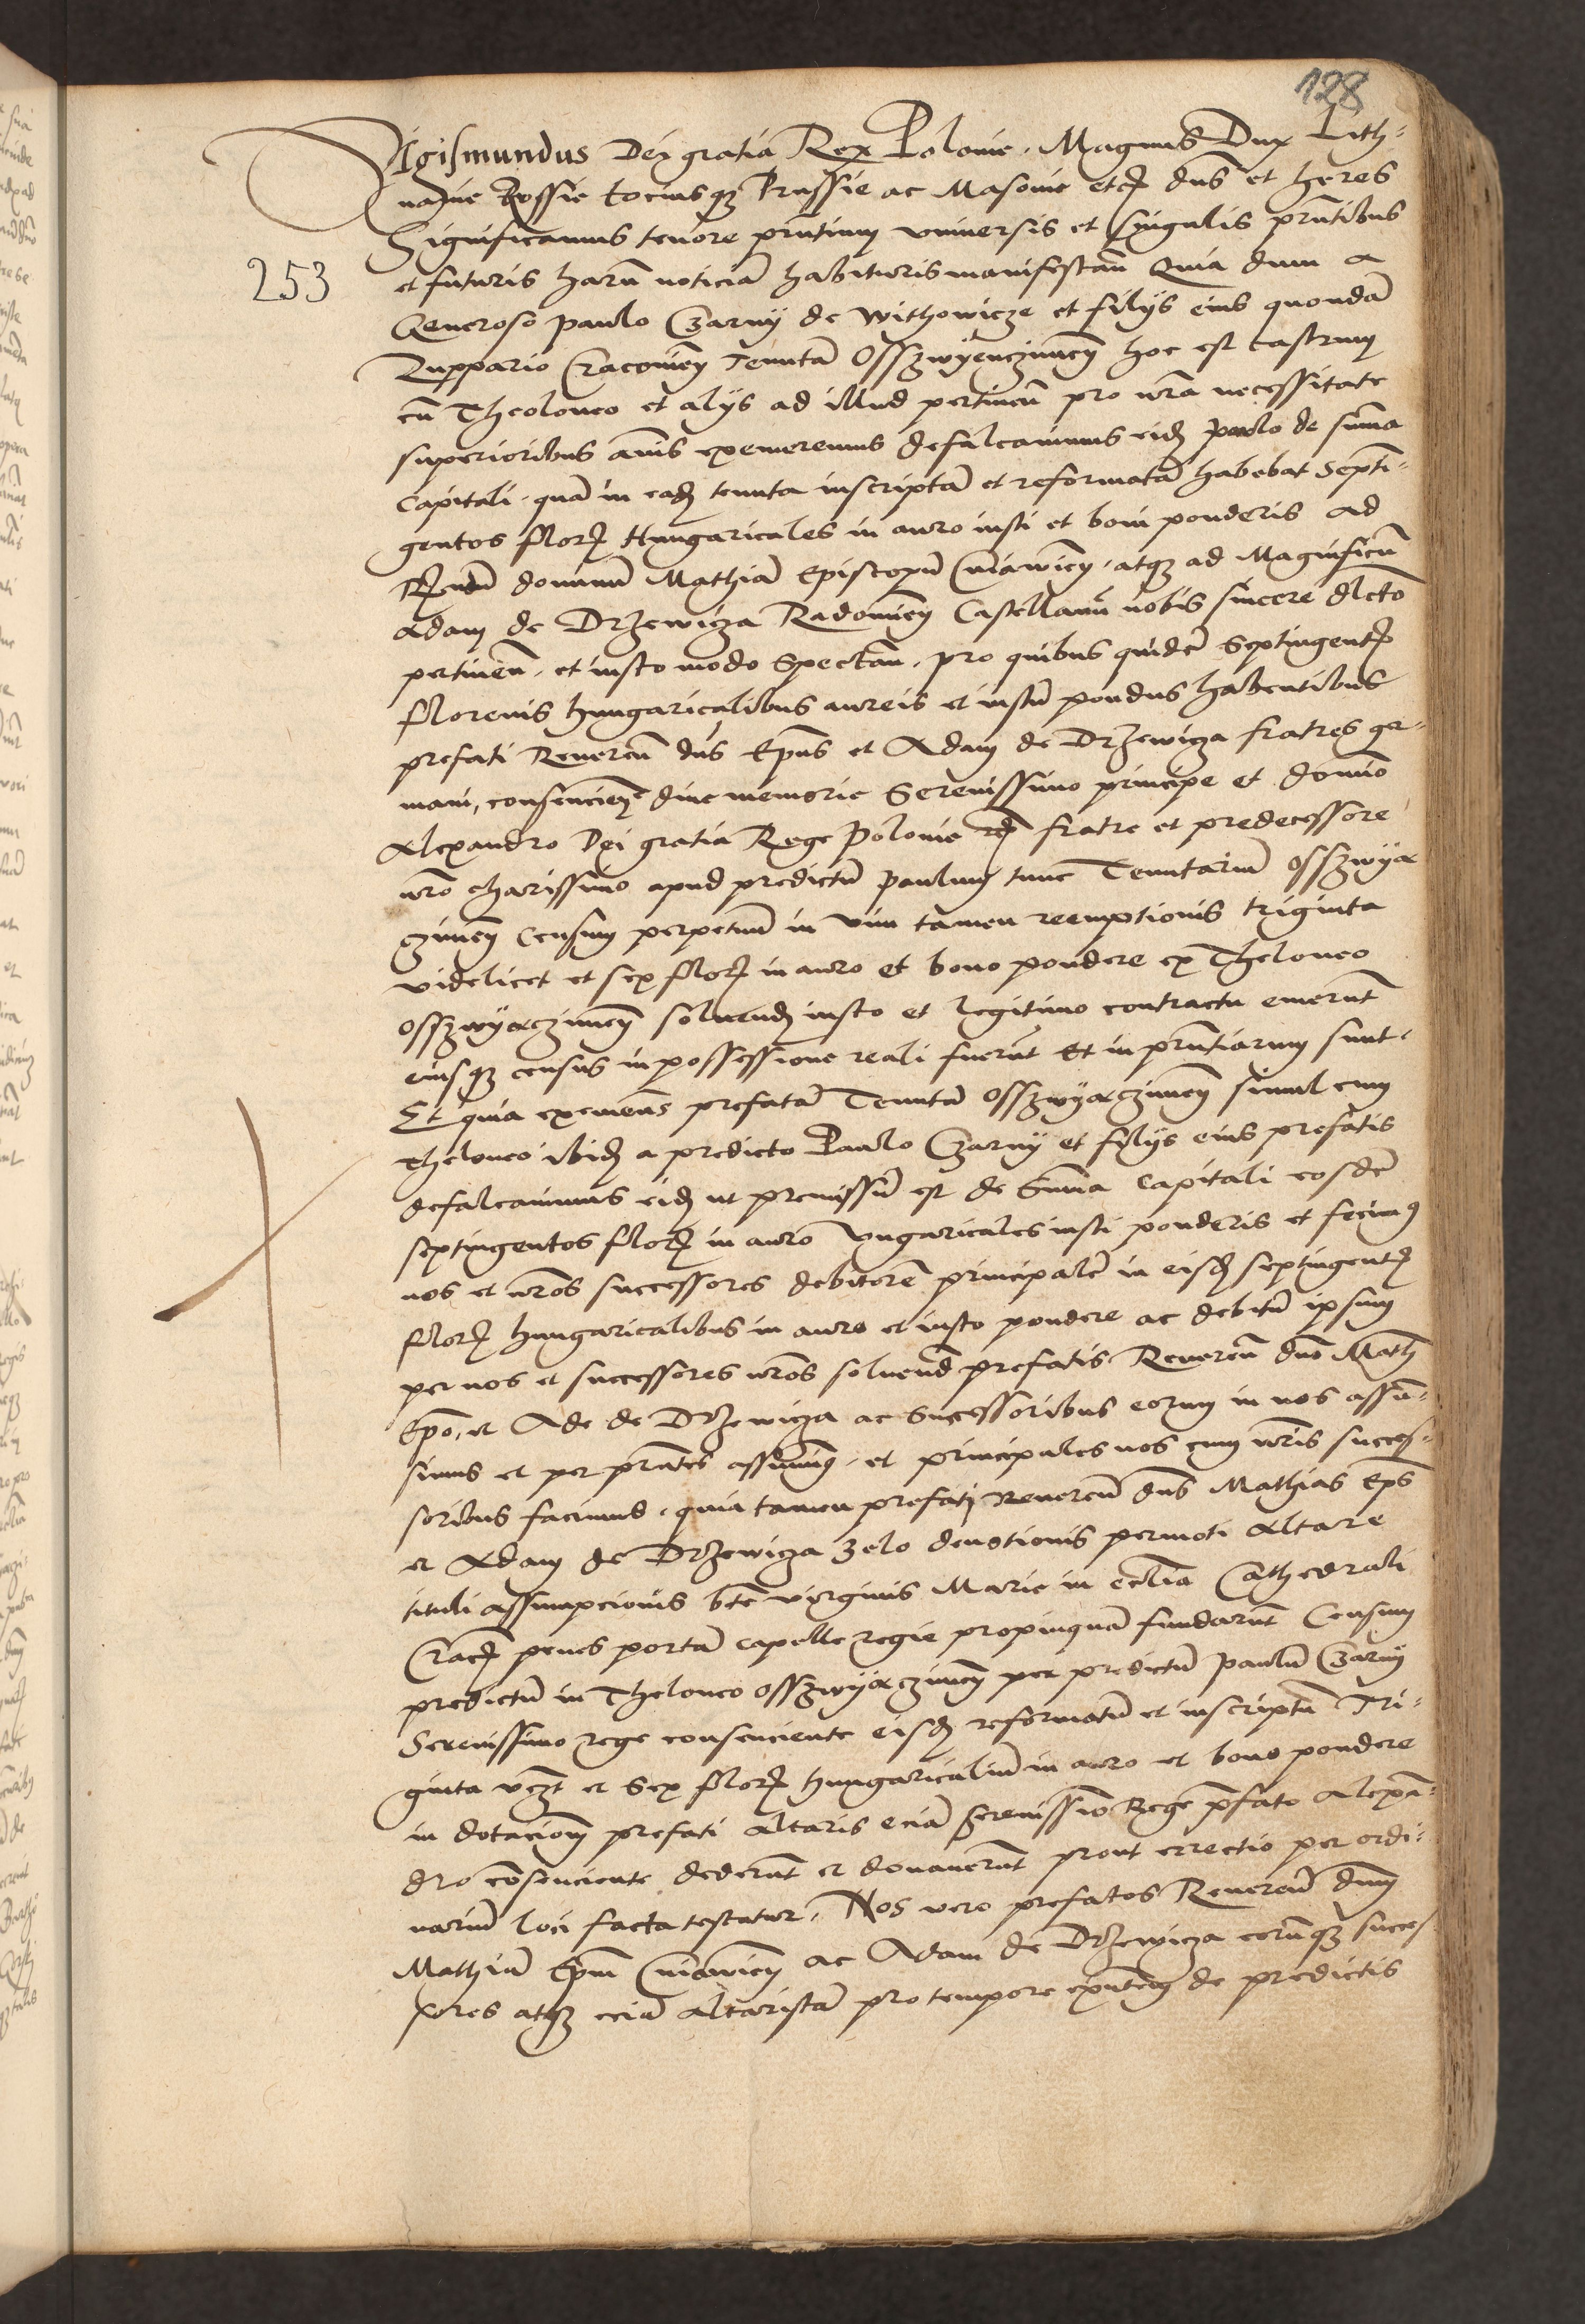 128
Sigismundus Dei gratia Rex Polonie, Magnus Dux Lith-
uanie Russie tociusq3 Prussie ac Masovie etc dns et heres
Significamus tenore pntium universis et singulis pntibus
253
et futuris harum noticiam habituris manifestam Quia dum a
Generoso Paulo Czarny de Withowicze et filys eius quondam
Zuppario Cracovien Tenutam Osszwyenczimen hoc est castrum
cum Theoloneo et alys ad illud pertinen pro nra necessitate
superioribus annis exemeremus defalcavimus eidem paulo de summa
Capitali quam in eadem tenuta inscriptam et reformatam habebat Septi-
gentos flor Hungaricales in auro iusti et boni ponderis ad
Rndum dominum Mathiam Episcopum Cuiavien, atq3 ad Magnificum
Adam de Drzewicza Radomien Castellanum nobis sincere dlcto
pertinen, et iusto modo spectan, pro quibus quidem septingentis
florenis hungaricalibus aureis et iustum pondus habentibus
prefati Reveren dns Epus et Adam de Drzewicza fratres ger-
mani, consencien dive memorie Serenissimo principe et domino
Alexandro Dei gratia Rege Polonie etc fratre et predecessore
nro charissimo apud predictum paulum tunc Tenutarium Osszwya
czimen Censum perpetuum in vim tamen reemptionis triginta
videlicet et sex flor in auro et bono pondere ex Theloneo
Osszwyaczimen solvend iusto et legitimo contractu emerunt
eiusq3 census in possessione reali fuerunt Et in pntiarum sunt.
Et quia eximens prefatam Tenutam Osszwyaczimen simul cum
Theloneo ibidem a predicto Paulo Czarny et filys eius prefatis
defalcavimus eidem ut premissum est de Summa Capitali eosdem
septingentos flor in auro Ungaricales iusti ponderis et fecimus
nos et nros successores debitorem principalem in eisdem septingentis
flor hungaricalibus in auro et iusto pondere ac debitum ipsum
per nos et successores nros solvend prefatis Reveren dno Math
Epo, et Ade de Drzewicza ac successoribus eorum in nos assum-
simus et per pntes assumimus, et principales nos cum nris succes-
soribus facimus, quia tamen prefati Reveren dns Mathias Eps
et Adam de Drzewicza zelo devotionis permoti Altare
tituli assumpcionis bte virginis Marie in ecclia Cathedrali
Crac penes portam capelle regie propinquam fundarunt Censum
predictum in Theloneo Osszwyaczimen per predictum Paulum Czarny
Serenissimo rege consenciente eisdem reformatum et inscriptum Tri-
ginta vczt et Sex flor hungaricalium in auro et bono pondere
in dotacionem prefati Altaris eciam serenissimo Rege pfato Alexan-
dro consenciente dederunt et donaverunt prout errectio per ordi-
narium loci facta testatur. Nos vero prefatos Reveren dnm
Mathiam Epm Cuiavien ac Adam de Drzewicza eorumq3 succes
sores atq3 eciam Altaristam pro tempore exnten de predictis